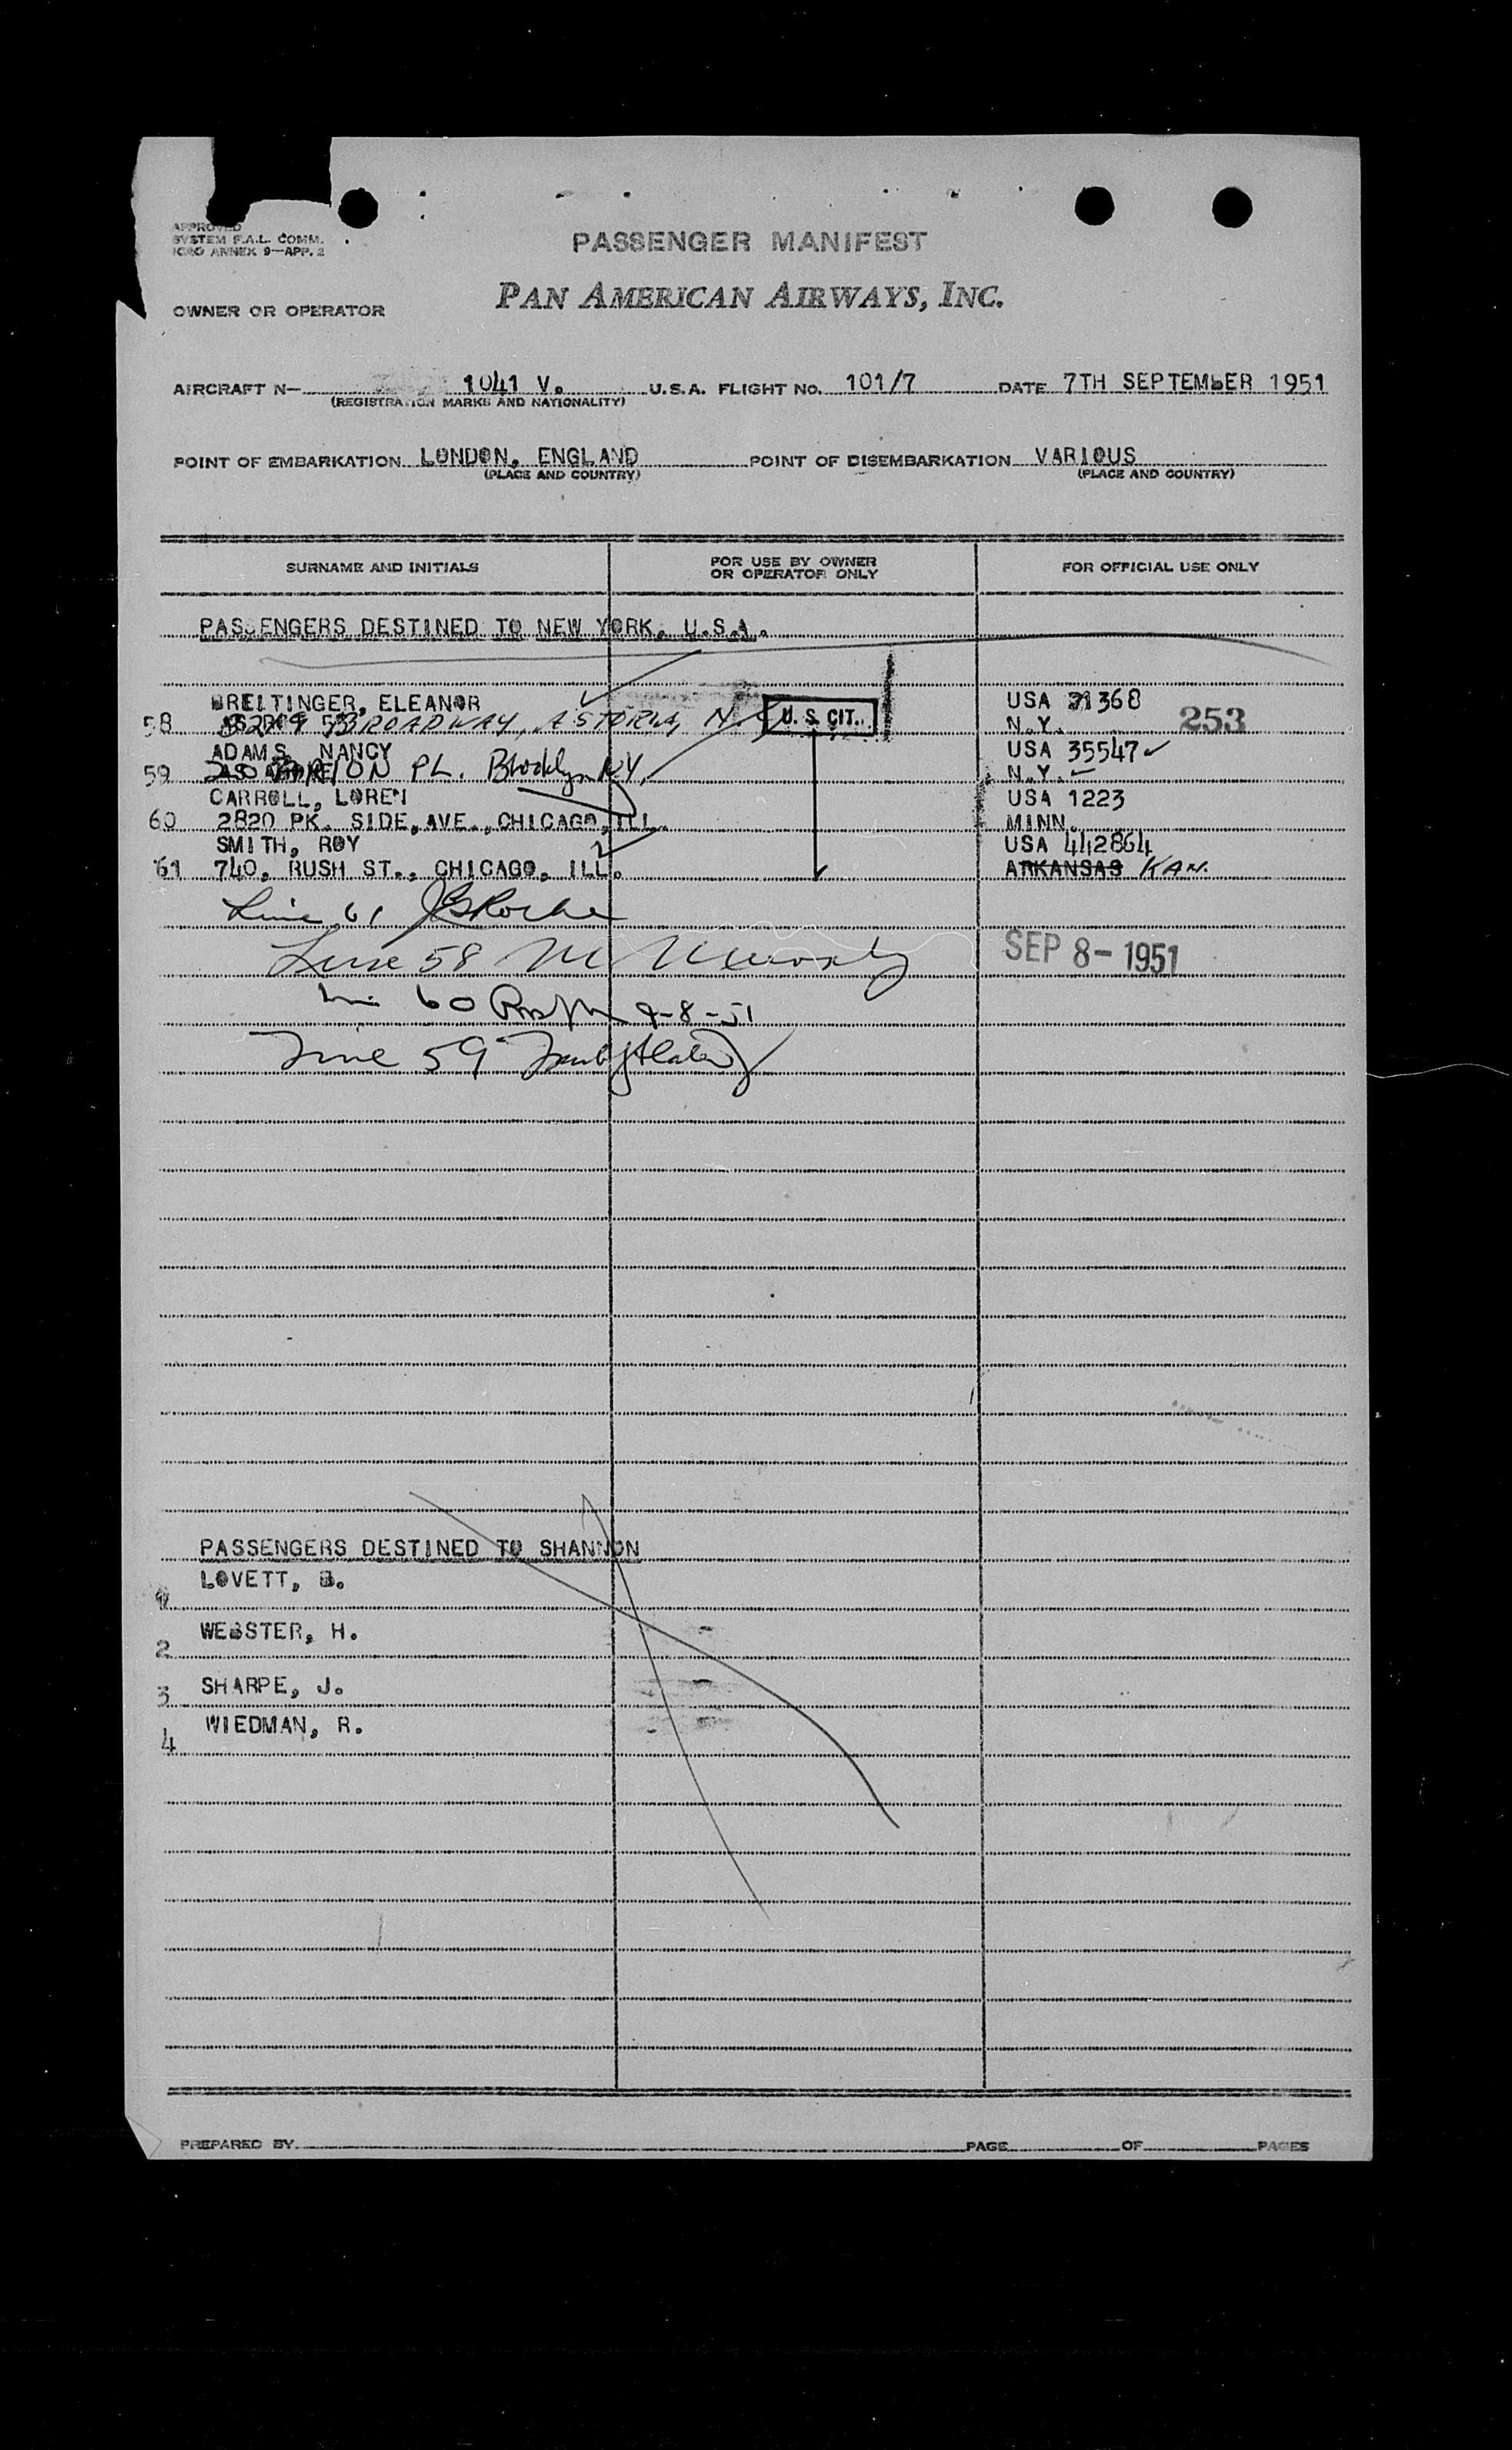 APPROVED
SYSTEM F.A.L. COMM.
ICAO ANNEX 9—APP. 2
PASSENGER MANIFEST
OWNER OR OPERATOR
PAN AMERICAN AIRWAYS, INC.
AIRCRAFT N— 1041 V. U.S.A. FLIGHT NO. 101/7 DATE 7TH SEPTEMBER 1951
(REGISTRATION MARKS AND NATIONALITY)
POINT OF EMBARKATION LONDON, ENGLAND POINT OF DISEMBARKATION VARIOUS
(PLACE AND COUNTRY) (PLACE AND COUNTRY)
SURNAME AND INITIALS FOR USE BY OWNER OR OPERATOR ONLY FOR OFFICIAL USE ONLY
PASSENGERS DESTINED TO NEW YORK, U.S.A.
BREITINGER, ELEANOR USA 368
58 BROADWAY, ASTORIA, N. U. S. CIT. N.Y. 253
ADAMS, NANCY USA 35547
59 PL. Brooklyn N.Y. N.Y.
CARROLL, LOREN USA 1223
60 2820 PK. SIDE, AVE., CHICAGO, ILL. MINN.
SMITH, ROY USA 442864
61 740, RUSH ST., CHICAGO, ILL. ARKANSAS KAN.
Line 61
Line 58 SEP 8- 1951
60 9-8-51
Line 59
PASSENGERS DESTINED TO SHANNON
LOVETT, B.
1
WEBSTER, H.
2
SHARPE, J.
3
WIEDMAN, R.
4
PREPARED BY PAGE OF PAGES